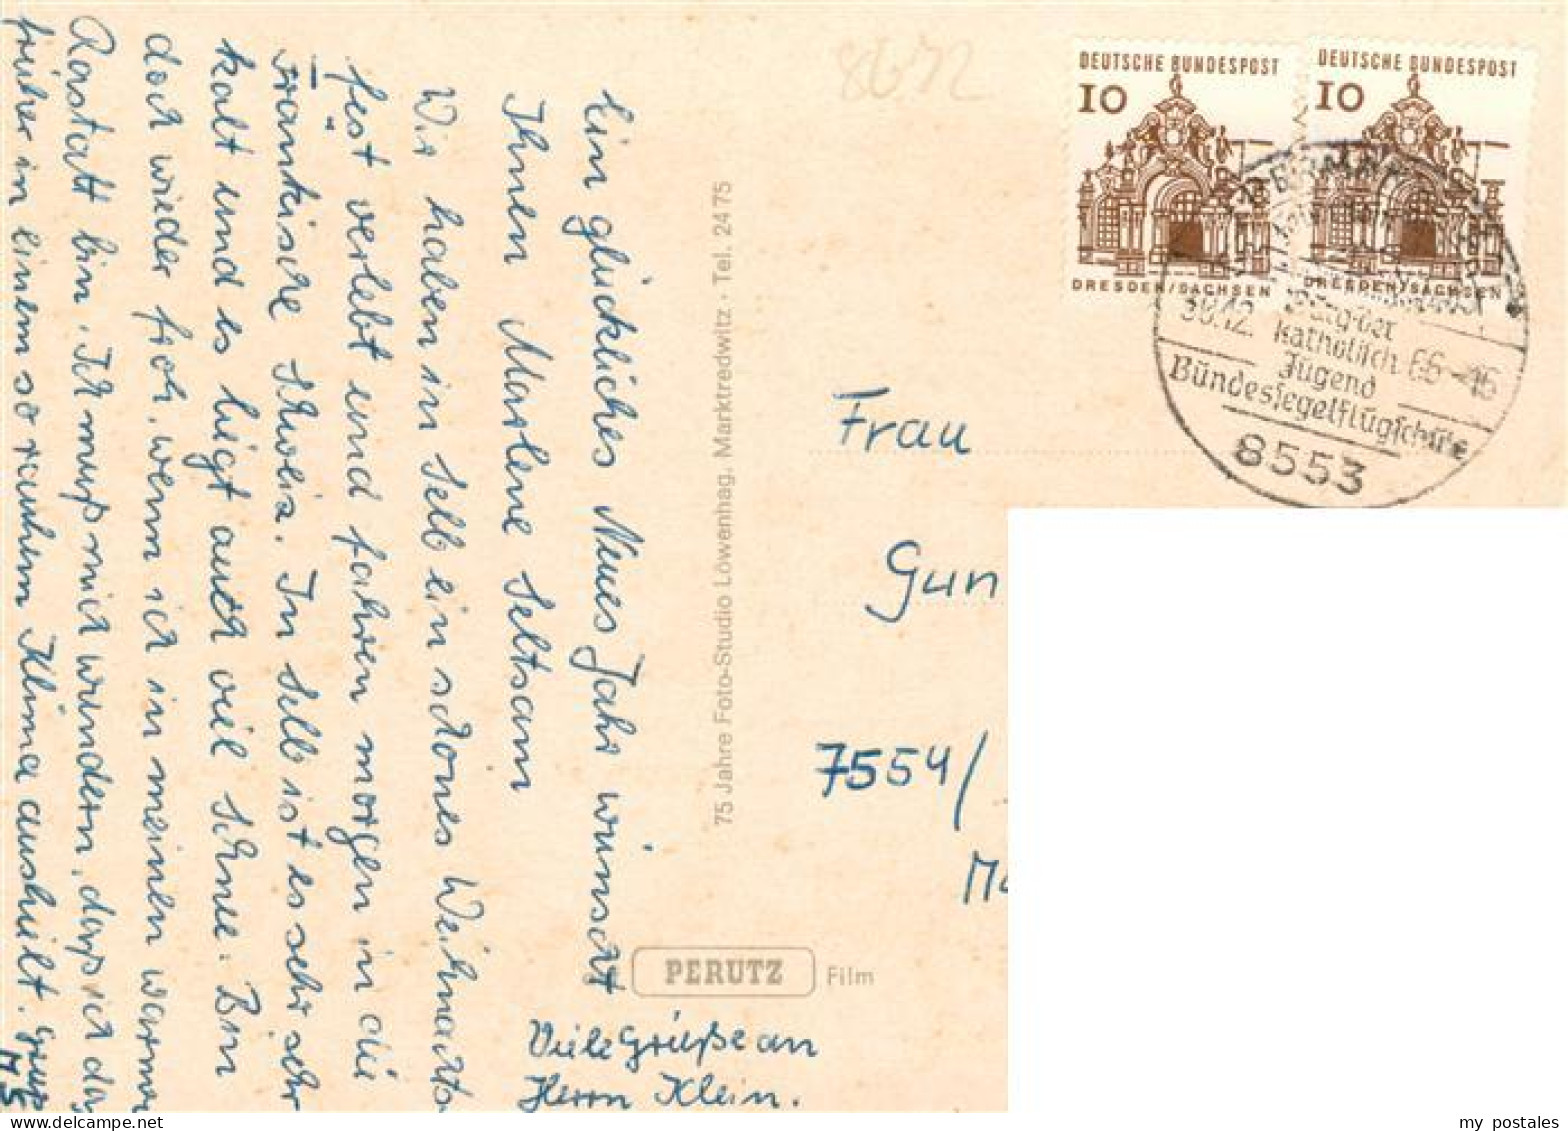 Ein glückliches Neues Jahr wünscht
Ihnen Marlene Seltsam
Wir haben in Selb ein schönes Weihnachts
fest verlebt und fahren morgen in die
Fränkische Schweiz. In Selb ist es sehr sehr
kalt und es liegt auch viel Schnee. Bin
doch wieder froh, wenn ich in meinem warmen
Rastatt bin. Ich muß mich wundern, dass ich da
früher in einem so rauhem Klima aushielt. Gruß
M S
Viele Grüße an
Herrn Klein.
75 Jahre Foto-Studio Löwenhag, Marktredwitz · Tel. 24 75
PERUTZ Film
8672
DEUTSCHE BUNDESPOST
10
DRESDEN/SACHSEN
DEUTSCHE BUNDESPOST
10
DRESDEN/SACHSEN
30.12. 66-16
Burg der
Katholisch
Jugend
Bundessegelflugschule
8553
Frau
Gun
7554/